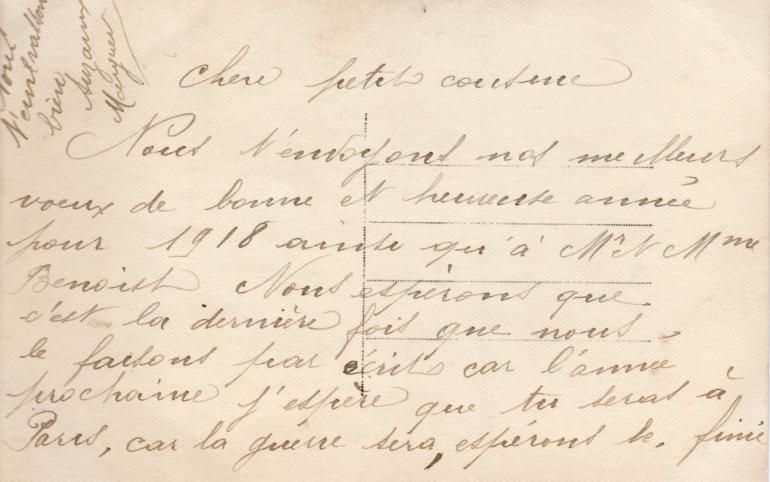 Chere petit cousine
Nous t'envoyons nos meilleurs
voeux de bonne et heureuse année
pour 1918 ainsi qu'à Mr et Mme
Benoist Nous espérons que
c'est la dernière fois que nous
le faisons par écrit car l'année
prochaine j'espère que tu seras à
Paris, car la guerre sera, espérons le, finie
Nous
t'embrassons
bien
Suzanne